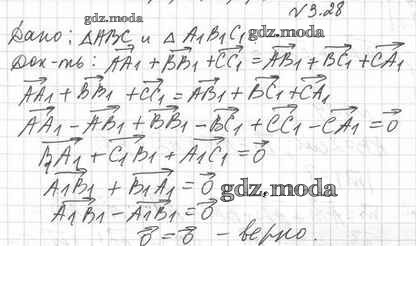 √ 3.28
gdz.moda
Дано: △ABC и △ A₁B₁C₁ gdz.moda
Док-ть: AA₁ + BB₁ + CC₁ = AB₁ + BC₁ + CA₁
AA₁ + BB₁ + CC₁ = AB₁ + BC₁ + CA₁
AA₁ - AB₁ + BB₁ - BC₁ + CC₁ - CA₁ = 0
B₁A₁ + C₁B₁ + A₁C₁ = 0
A₁B₁ + B₁A₁ = 0 gdz.moda
A₁B₁ - A₁B₁ = 0
0 = 0 - верно.